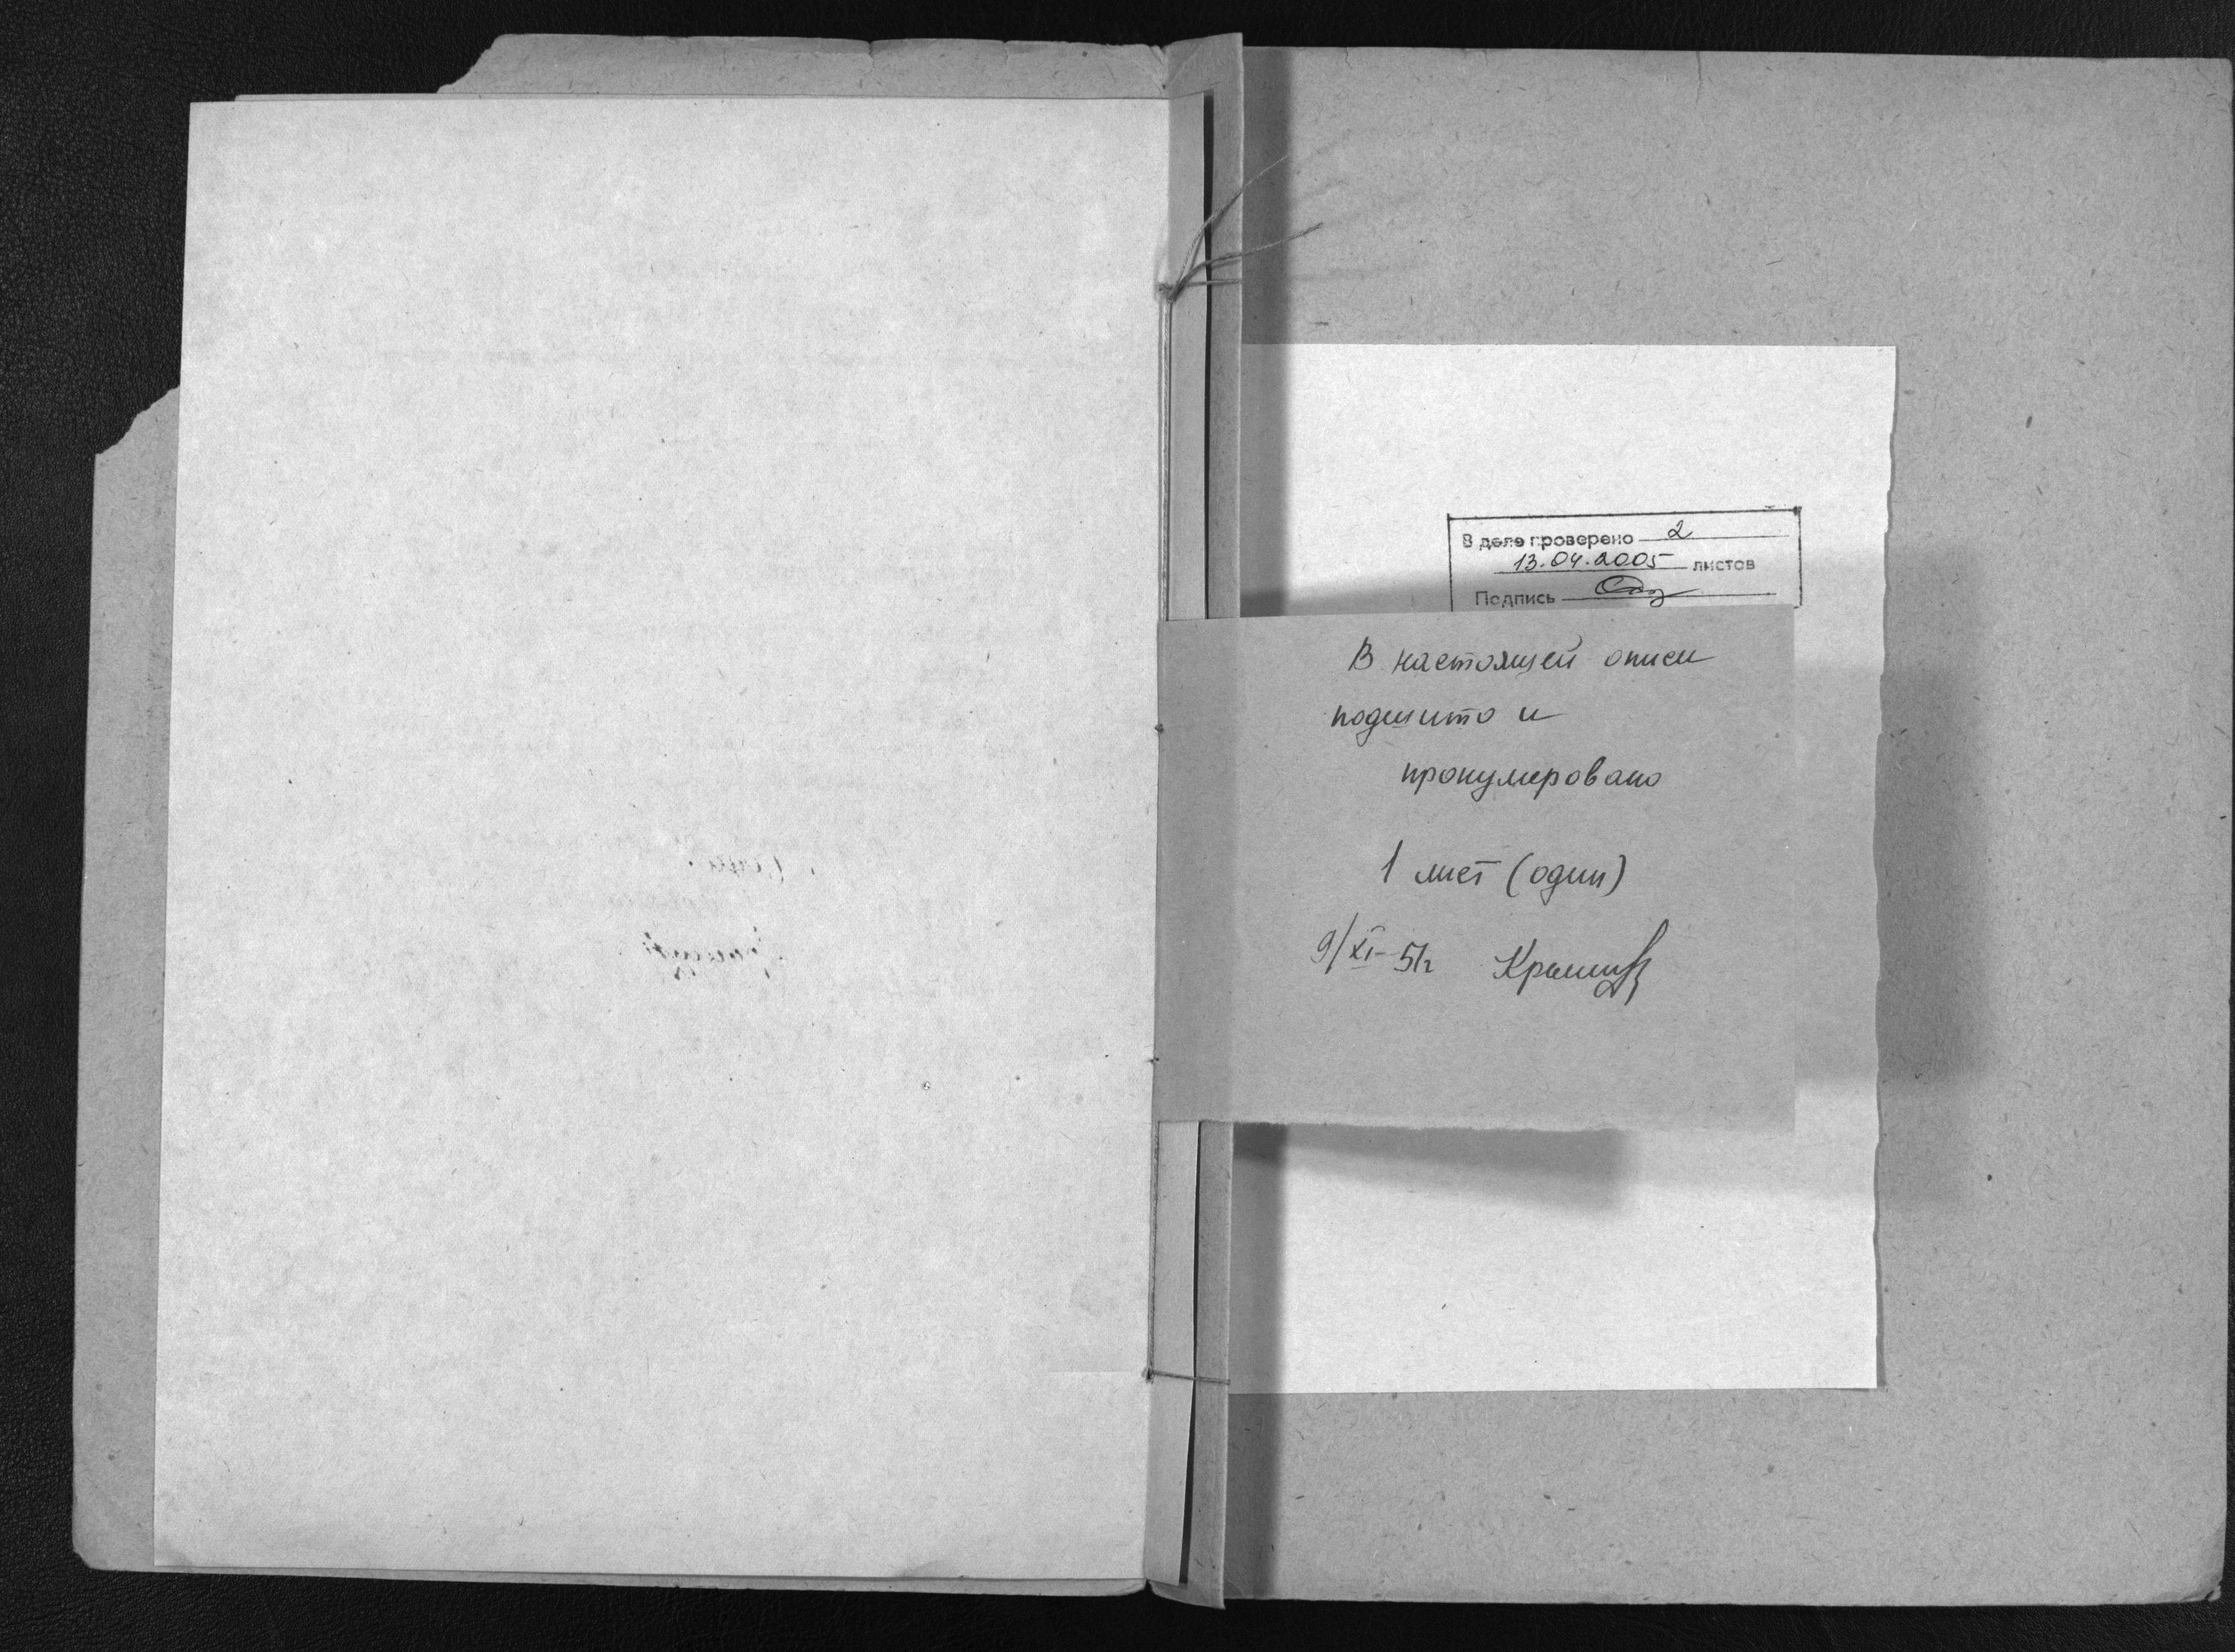 В деле проверено 2
13.04.2005 листов
Подпись
В настоящей описи
подшито и
пронумеровано
1 лист (один)
9/XI-51г